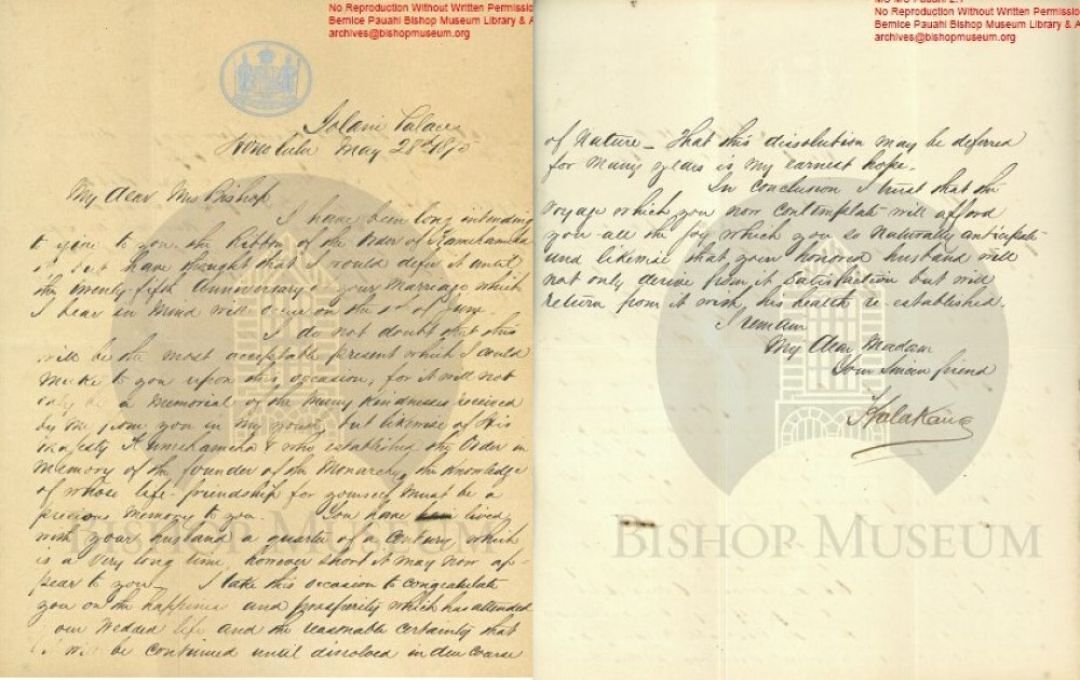 No Reproduction Without Written Permissio
Bernice Pauahi Bishop Museum Library & A
archives@bishopmuseum.org
Iolani Palace
Honolulu May 28th 1875
My Dear Mrs Bishop
I have been long intending
to give to you the Ribbon of the Order of Kamehameha
but have thought that I would defer it until
the twenty-fifth Anniversary of your Marriage which
I bear in mind will occur on the of June.
I do not doubt that this
will be the most acceptable present which I could
make to you upon this occasion, for it will not
only be a Memorial of the many kindnesses received
by me from you in my youth, but likewise of His
Majesty Kamehameha V who established the Order in
Memory of the founder of the Monarchy, the knowledge
of whose life-friendship for yourself must be a
precious memory to you. You have lived
with your husband a quarter of a Century, which
is a very long time, however short it may now ap-
pear to you_ I take this occasion to congratulate
you on the happiness and prosperity which has attended
your Wedded life and the reasonable certainty that
it will be continued until dissolved in due course
BISHOP MUSEUM
No Reproduction Without Written Permissio
Bernice Pauahi Bishop Museum Library & A
archives@bishopmuseum.org
of Nature_ That this dissolution may be deferred
for many years is my earnest hope.
In conclusion I trust that the
voyage which you now contemplate will afford
you all the joy which you so naturally anticipate
and likewise that your honored husband will
not only derive from it satisfaction but will
return from it with his health re-established.
I remain
My Dear Madam
Your Sincere friend
Kalakaua
BISHOP MUSEUM